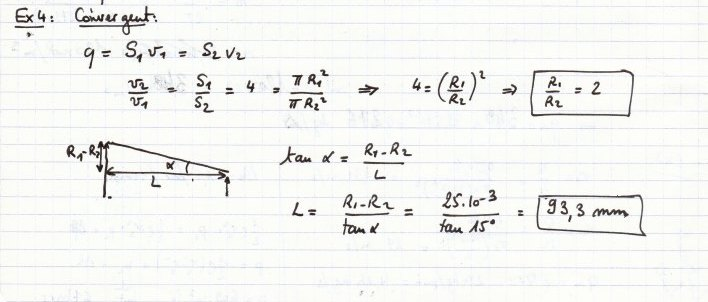 Ex 4: Convergent:
q = S₁ v₁ = S₂ v₂
v₂/v₁ = S₁/S₂ = 4 = π R₁²/π R₂² ⇒ 4 = (R₁/R₂)² ⇒ R₁/R₂ = 2
R₁-R₂ α L
tan α = R₁-R₂/L
L = R₁-R₂/tan α = 25.10-3/tan 15° = 93,3 mm